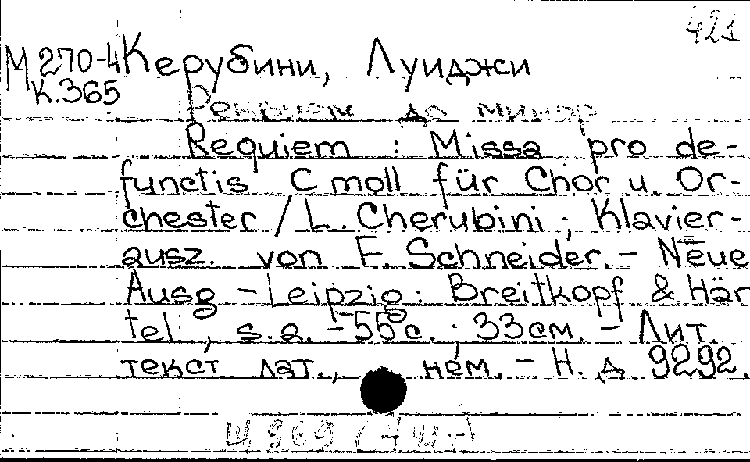 421
М 270-4 Керубини, Луиджи
К.365
Реквием до минор
Requiem : Missa pro de-
functis C moll für Chor u. Or-
chester / L. Cherubini ; Klavier-
ausz. von F. Schneider. - Neue
Ausg. - Leipzig : Breitkopf & Här
tel, s.a. - 55 с. ; 33 см. - Лит.
текст лат., нем. - Н. д 9292.